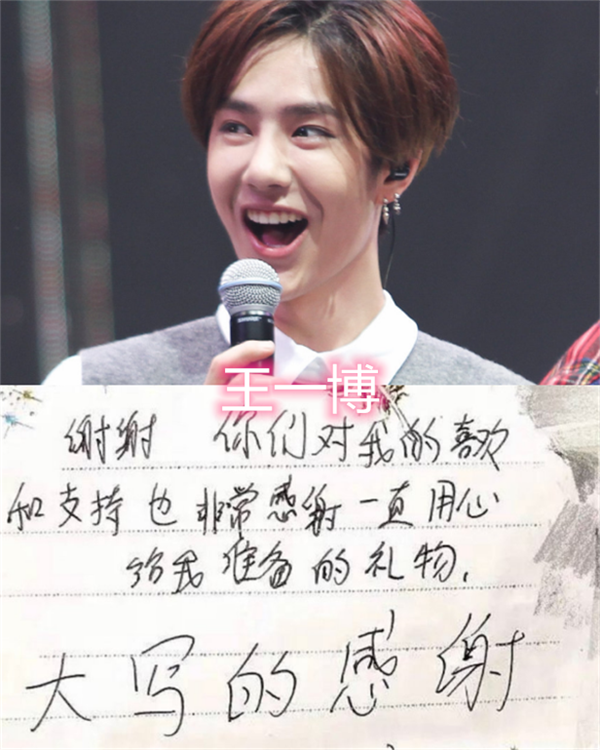 王一博
谢谢 你们对我的喜欢
和支持也非常感谢一直用心
给我准备的礼物.
大写的感谢